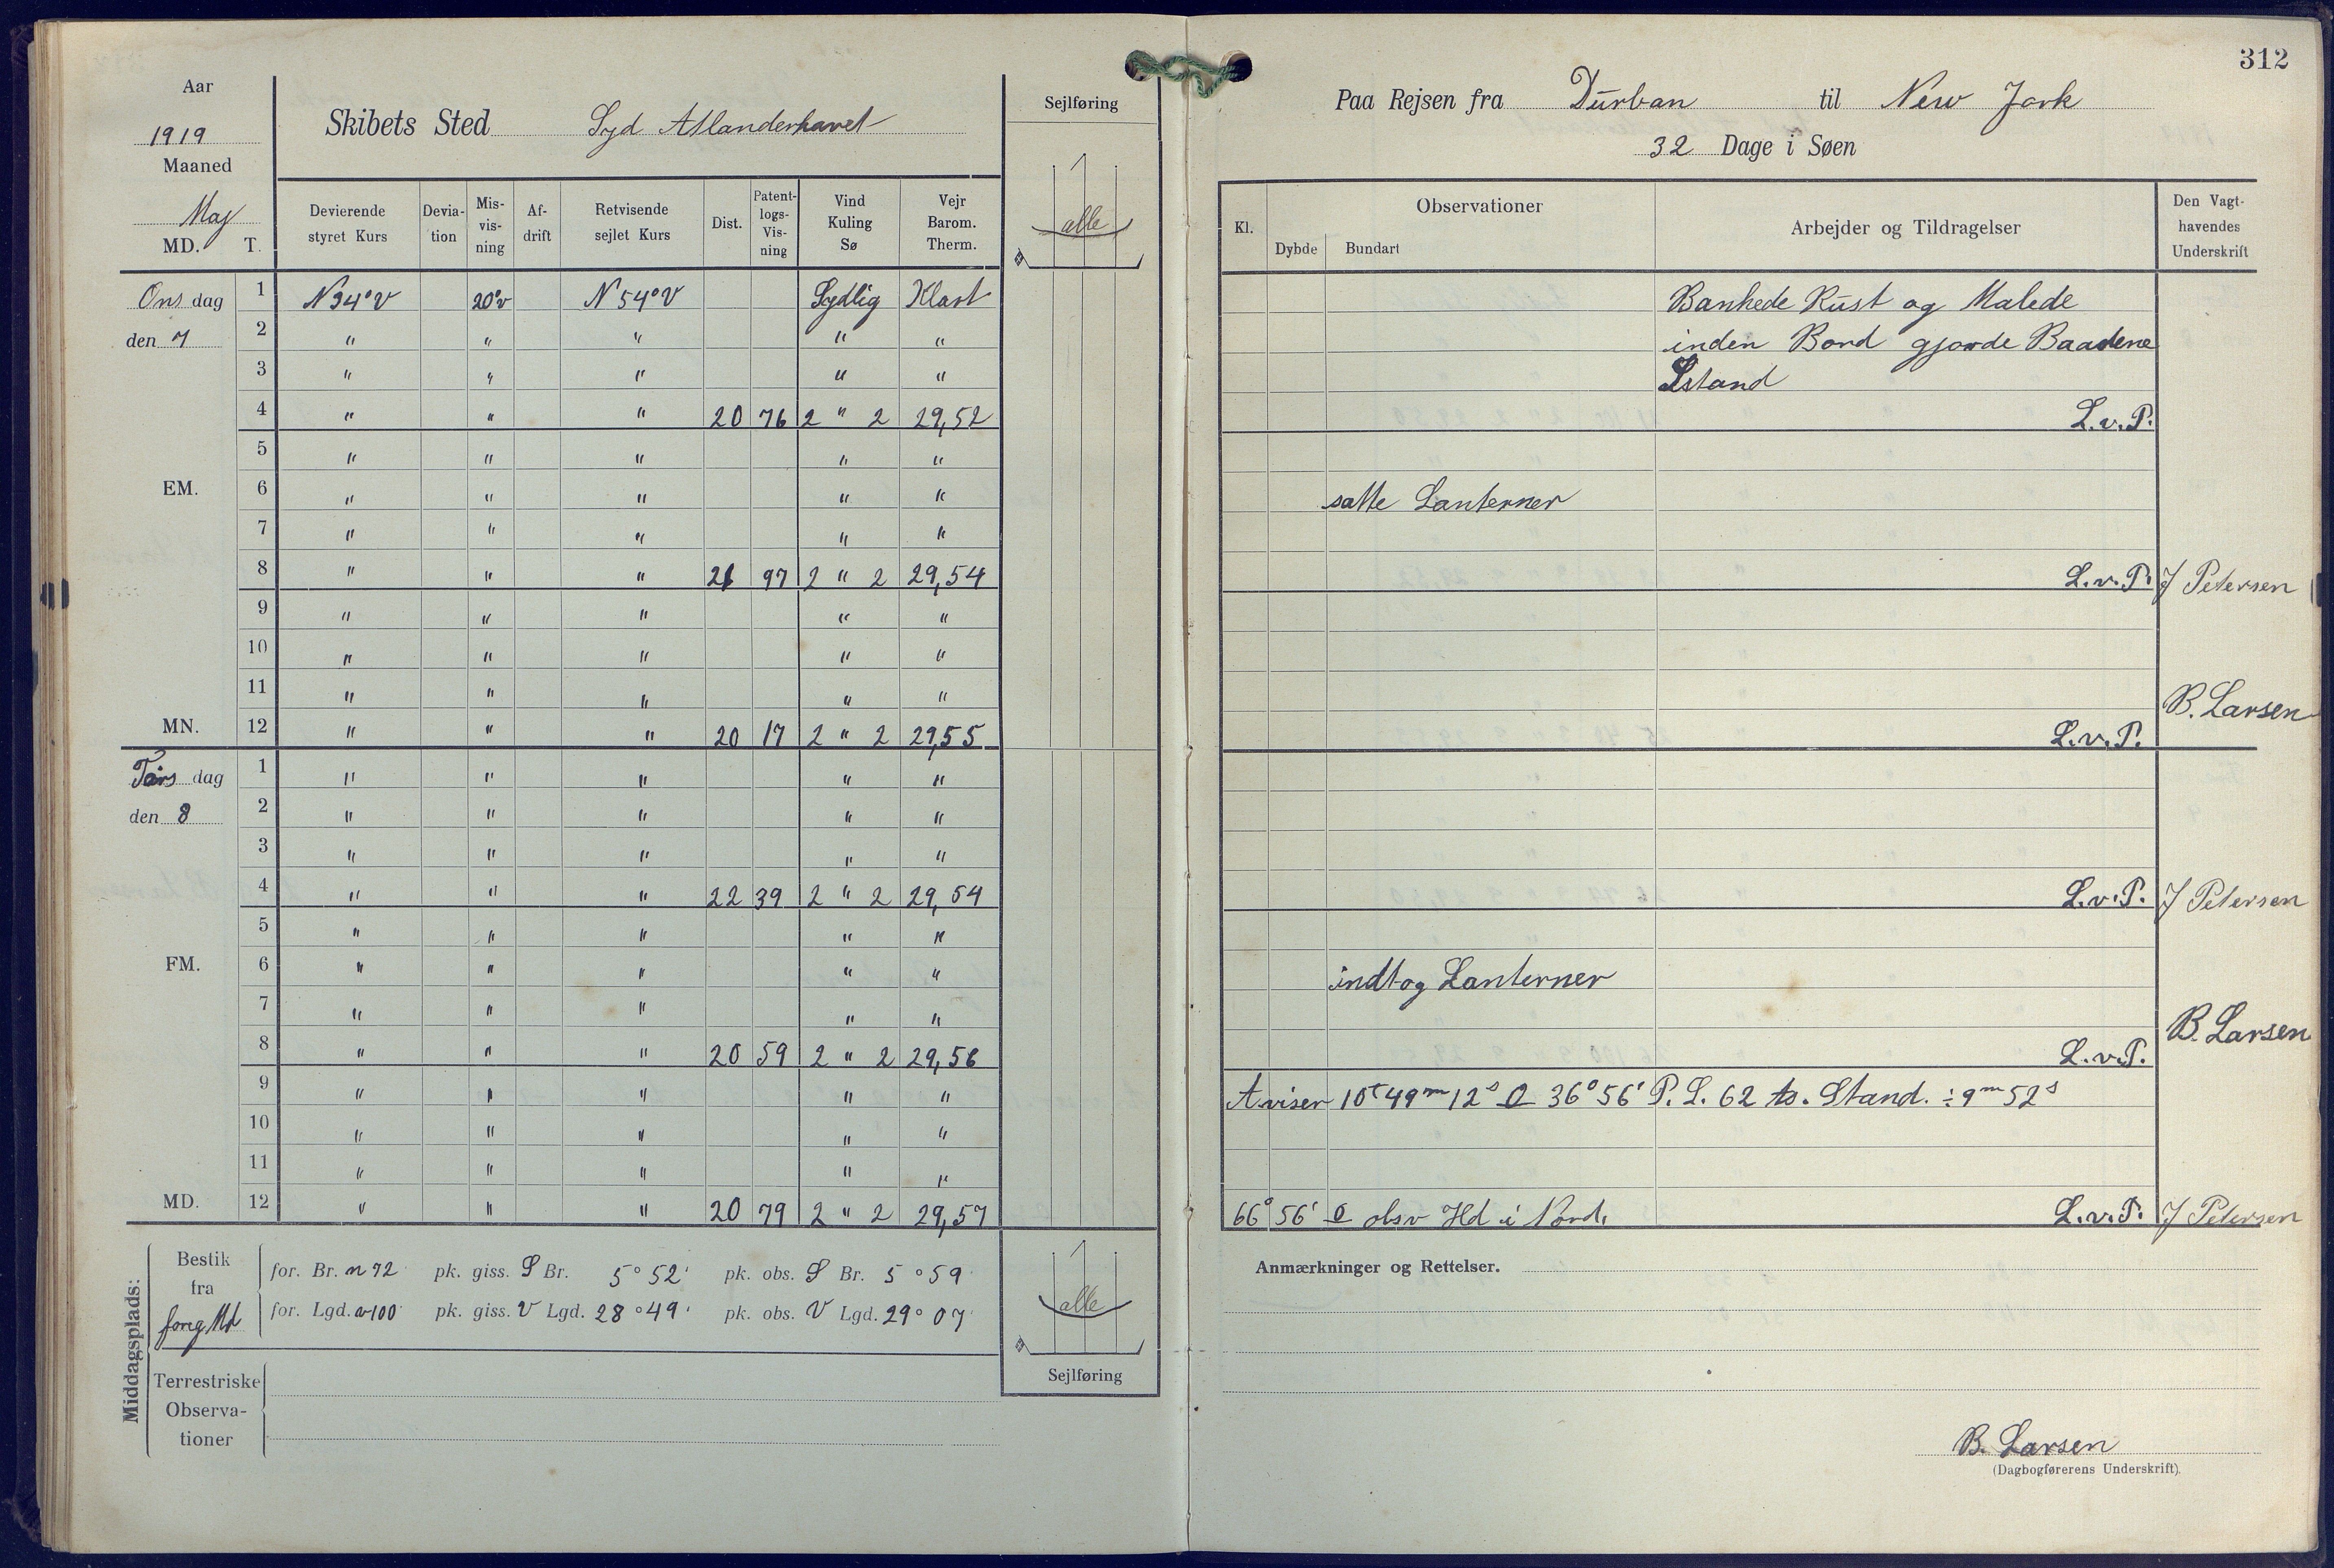 312
Aar
1919
Maaned
Maj
MD. T.
Skibets Sted Syd Atlanderhavet
Sejlføring
Paa Rejsen fra Durban til New Jork
32 Dage i Søen
Devierende styret Kurs
Devia-tion
Mis-vis-ning
Af-drift
Retvisende sejlet Kurs
Dist.
Patent-logs-Vis-ning
Vind Kuling Sø
Vejr Barom. Therm.
alle
Kl.
Observationer
Dybde Bundart
Arbejder og Tildragelser
Den Vagt-havendes Underskrift
Ons dag 1 N34°V 20°v N54°V Sydlig Klart Bankede Rust og Malede
den 7 2 " " " " " inden Bord gjorde Baadene
3 " " " " " Istand
4 " " " 20 76 2 " 2 29,52 L.v.P.
5 " " " " "
EM. 6 " " " " " satte Lanterner
7 " " " " "
8 " " " 21 97 2 " 2 29,54 L.v.P. J Petersen
9 " " " " "
10 " " " " "
11 " " " " " B. Larsen
MN. 12 " " " 20 17 2 " 2 29,55 L.v.P.
Tors dag 1 " " " " "
den 8 2 " " " " "
3 " " " " "
4 " " " 22 39 2 " 2 29,54 L.v.P. J Petersen
5 " " " " "
FM. 6 " " " " " indtog Lanterner
7 " " " " " B. Larsen
8 " " " 20 59 2 " 2 29,56 L.v.P.
9 " " " " " A.viser 10t 49m 12s O 36° 56' P. L. 62 ts. Stand. ÷ 9m 52s
10 " " " " "
11 " " " " "
MD. 12 " " " 20 79 2 " 2 29,57 66° 56' O obsv Hd i Nord. L.v.P. J Petersen
Middagsplads:
Bestik fra foreg Md
for. Br. n 72 pk. giss. S Br. 5° 52' pk. obs. S Br. 5° 59
for. Lgd. v 100 pk. giss. V Lgd. 28° 49' pk. obs. V Lgd. 29° 07'
alle
Sejlføring
Terrestriske Observa-tioner
Anmærkninger og Rettelser.
B. Larsen
(Dagbogførerens Underskrift).